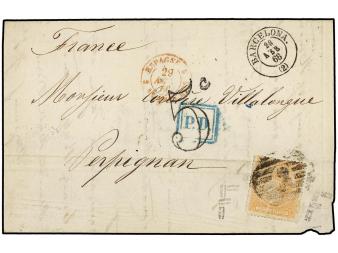 France
ESPAGNE
29
BARCELONA.
28
66
(2)
Monsieur Villalongue
P.D.
Perpignan